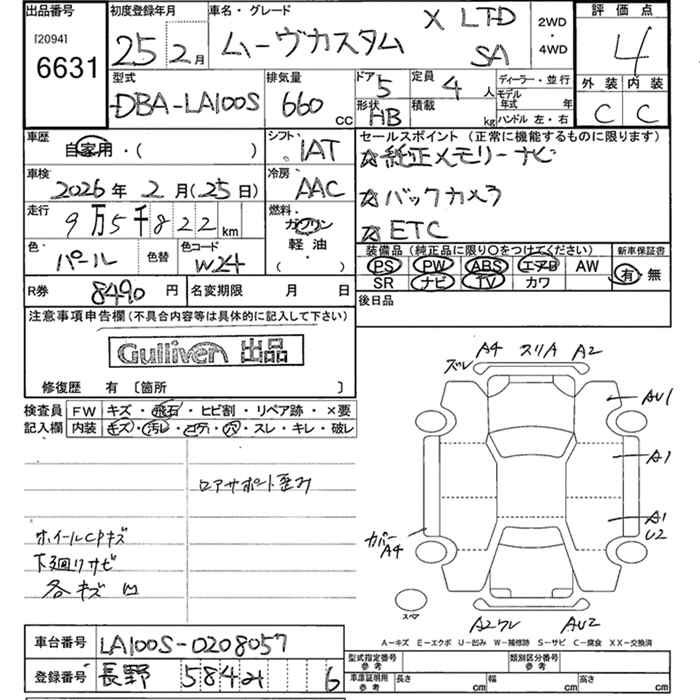 出品番号
[2094]
6631
初度登録年月
25年 2月
車名・グレード
ムーヴカスタム X LTD SA
2WD・4WD
評価点
4
外装 内装
C C
型式
DBA-LA100S
排気量
660 CC
ドア 5
形状 HB
定員 4人
積載 kg
ディーラー・並行
モデル年式 年
ハンドル 左・右
車歴
自家用・( )
シフト
IAT
車検
2026年 2月(25日)
冷房
AAC
走行
9万5千822km
燃料
ガソリン
軽油
( )
色
パール
色替
色コード
W24
セールスポイント(正常に機能するものに限ります)
☆純正メモリーナビ
☆バックカメラ
☆ETC
装備品(純正品に限り○をつけてください)
PS PW ABS エアB AW
SR ナビ TV カワ
新車保証書
有・無
R券 8490円
名変期限 月 日
後日品
注意事項申告欄(不具合内容等は具体的に記入して下さい)
Gulliver 出品
修復歴 有 〔箇所 〕
検査員記入欄
FW キズ・飛石・ヒビ割・リペア跡・×要
内装 キズ・汚レ・コゲ・穴・スレ・キレ・破レ
ロアサポート歪み
ホイールCPキズ
下廻りサビ
各キズ凹
ズレ A4 スリA A2
AU1
A1
A1
U2
カバーA4
スペア
A2ワレ AU2
A-キズ E-エクボ U-凹み W-補修跡 S-サビ C-腐食 XX-交換済
車台番号 LA100S-0208057
登録番号 長野 584 6
型式指定番号 参考
類別区分番号 参考
車庫証明用 参考
長さ cm
幅 cm
高さ cm